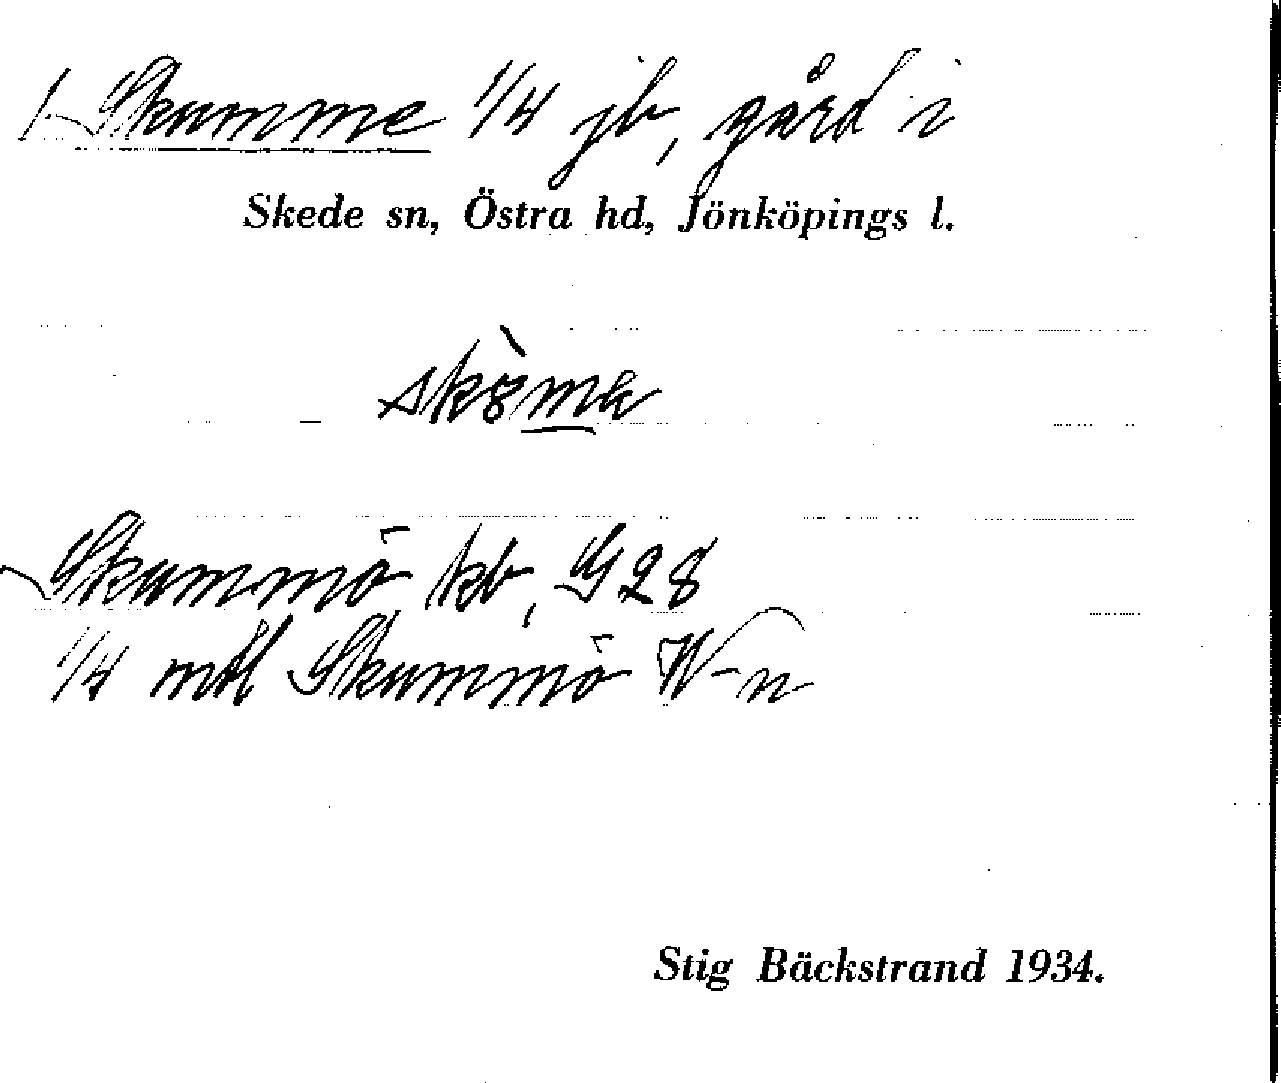 1. Skumme 1/4 jb, gård i
Skede sn, Östra hd, Jönköpings l.
Skummö kb, G 28
1/4 mtl Skummö W-n
Stig Bäckstrand 1934.